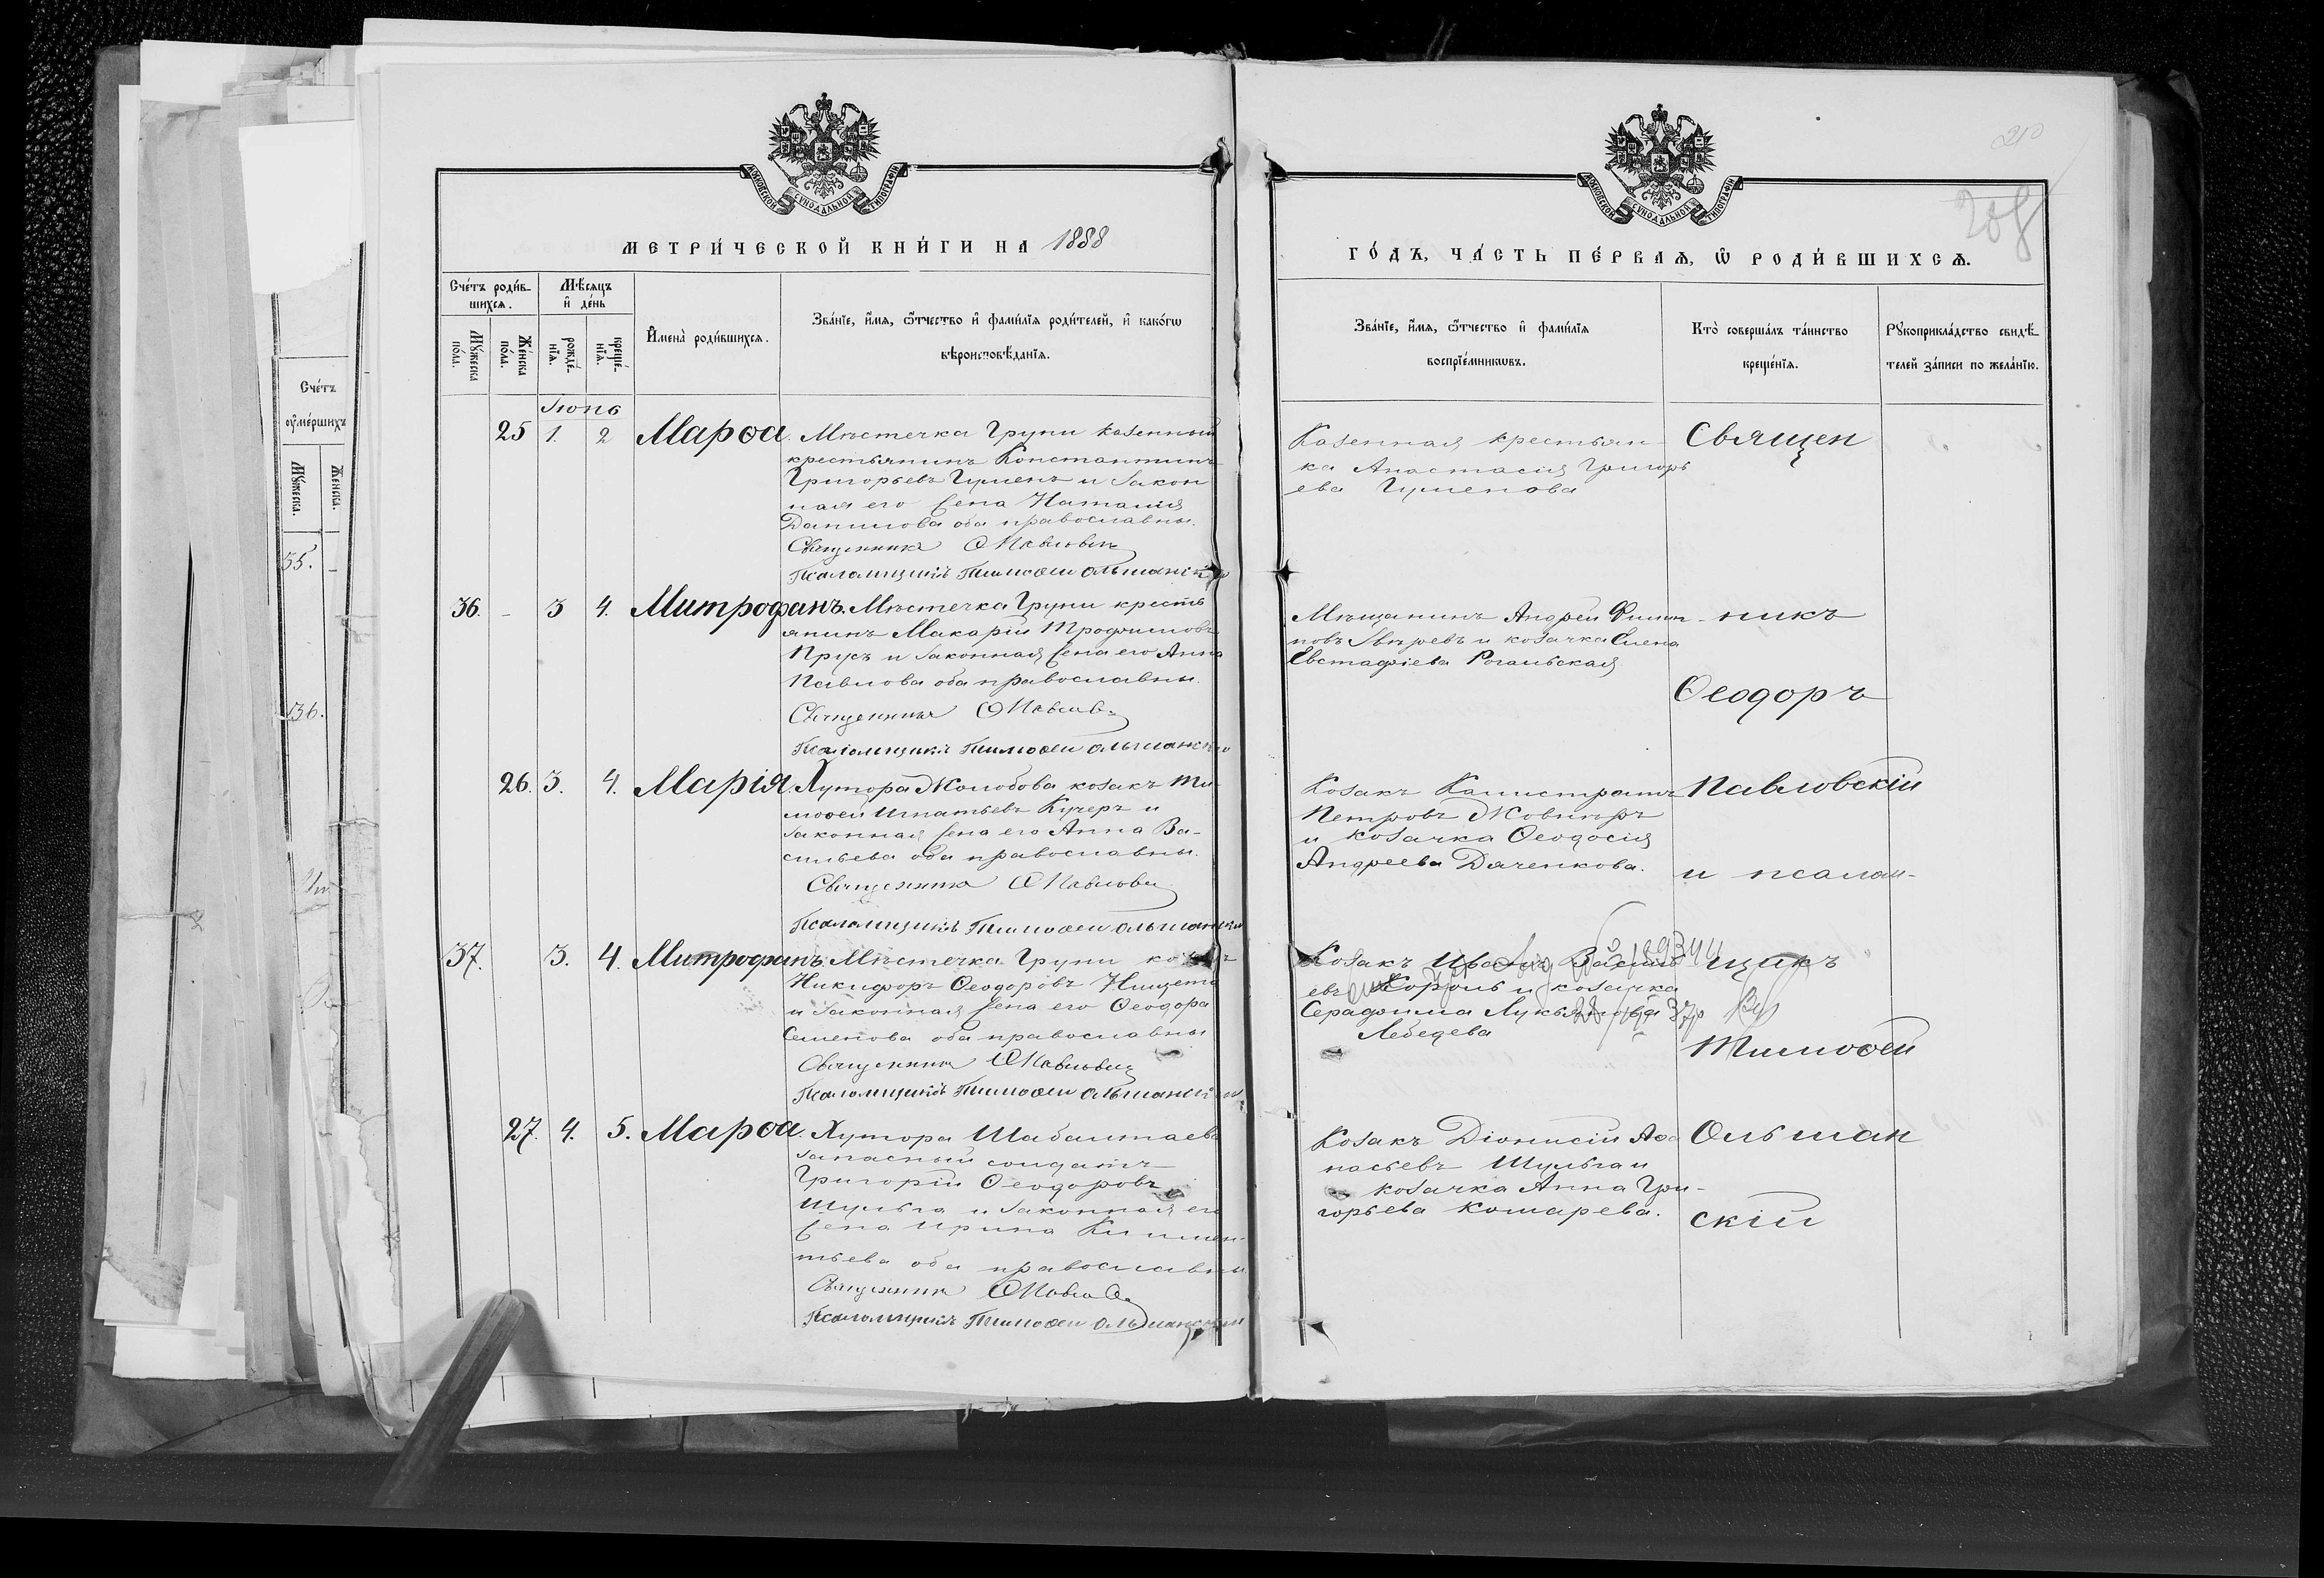 МОСКОВСКОЙ СѴНОДАЛЬНОЙ ТИПОГРАФІИ
МЕТРИ́ЧЕСКОЙ КНИ́ГИ НА 1888
Сче́тъ роди́в-
шихсѧ.
Мѣ́сѧцъ
и҆ де́нь
Мꙋ́жеска
по́ла.
Же́нска
по́ла.
рожде́-
нїѧ.
креще́-
нїѧ.
И҆мена̀ роди́вшихсѧ.
Зва́нїе, и҆́мѧ, ѻ҆́тчество и҆ фами́лїѧ роди́телей, и҆ како́гѡ
вѣроисповѣ́данїѧ.
Іюнь
25 1. 2 Марѳа. Мѣстечка Груни казенный
крестьянинъ Константинъ
Григорьевъ Гуменъ и закон
ная его жена Наталія
Данилова оба православны.
Священникъ Ѳ Павловск
Псаломщикъ Тимоѳей Ольшанскій
36. - 3 4. Митрофанъ. Мѣстечка Груни кресть
янинъ Макарій Трофимовъ
Прусъ и законная жена его Анна
Павлова оба православны.
Священникъ Ѳ Павлов
Псаломщикъ Тимоѳей Ольшанскій
26. 3. 4. Марія. Хутора Жолобова козакъ Ти-
моѳей Игнатьевъ Кучеръ и
законная жена его Анна Ва-
сильева оба православны.
Священникъ Ѳ Павловск
Псаломщикъ Тимоѳей Ольшанскій
37. 3. 4. Митрофанъ. Мѣстечка Груни козакъ
Никифоръ Ѳеодоровъ Нищета
и законная жена его Ѳеодора
Семенова оба православны
Священникъ Ѳ Павловск
Псаломщикъ Тимоѳей Ольшанскій
27. 4. 5. Марѳа. Хутора
запасный солдатъ
Григорій Ѳеодоровъ
Шульга и законная его
жена Ирина Климен-
тьева оба православны
Священникъ Ѳ Павлов
Псаломщикъ Тимоѳей Ольшанскій
Сче́тъ
ᲂу҆ме́ршихъ
Мꙋ́жеска.
Же́нска.
55. -
136.
208
МОСКОВСКОЙ СѴНОДАЛЬНОЙ ТИПОГРАФІИ
ГО́ДЪ, ЧА́СТЬ ПЕ́РВАѦ, Ѡ҆ РОДИ́ВШИХСѦ.
Зва́нїе, и҆́мѧ, ѻ҆́тчество и҆ фами́лїѧ
воспрїе́мникѡвъ.
Кто̀ соверша́лъ та́инство
креще́нїѧ.
Рꙋкоприкла́дство свидѣ́-
телей за́писи по жела́нїю.
Казенная крестьян-
ка Анастасія Григорь
ева Гуменова
Мѣщанинъ Андрей Филип-
повъ и козачка Елена
Евстафіева Рогальская
Козакъ Калистратъ
Петровъ Жовниръ
и козачка Ѳеодосія
Андреева Даченкова.
Козакъ Иванъ Василь
евъ Король и козачка
Серафима Лукьянова
Лебедева
Козакъ Діонисій Аѳа
насьевъ Шульга и
козачка Анна Гри-
горьева Комарева.
Священ
никъ
Ѳеодоръ
Павловскій
и псалом-
щикъ
Тимоѳей
Ольшан
скій